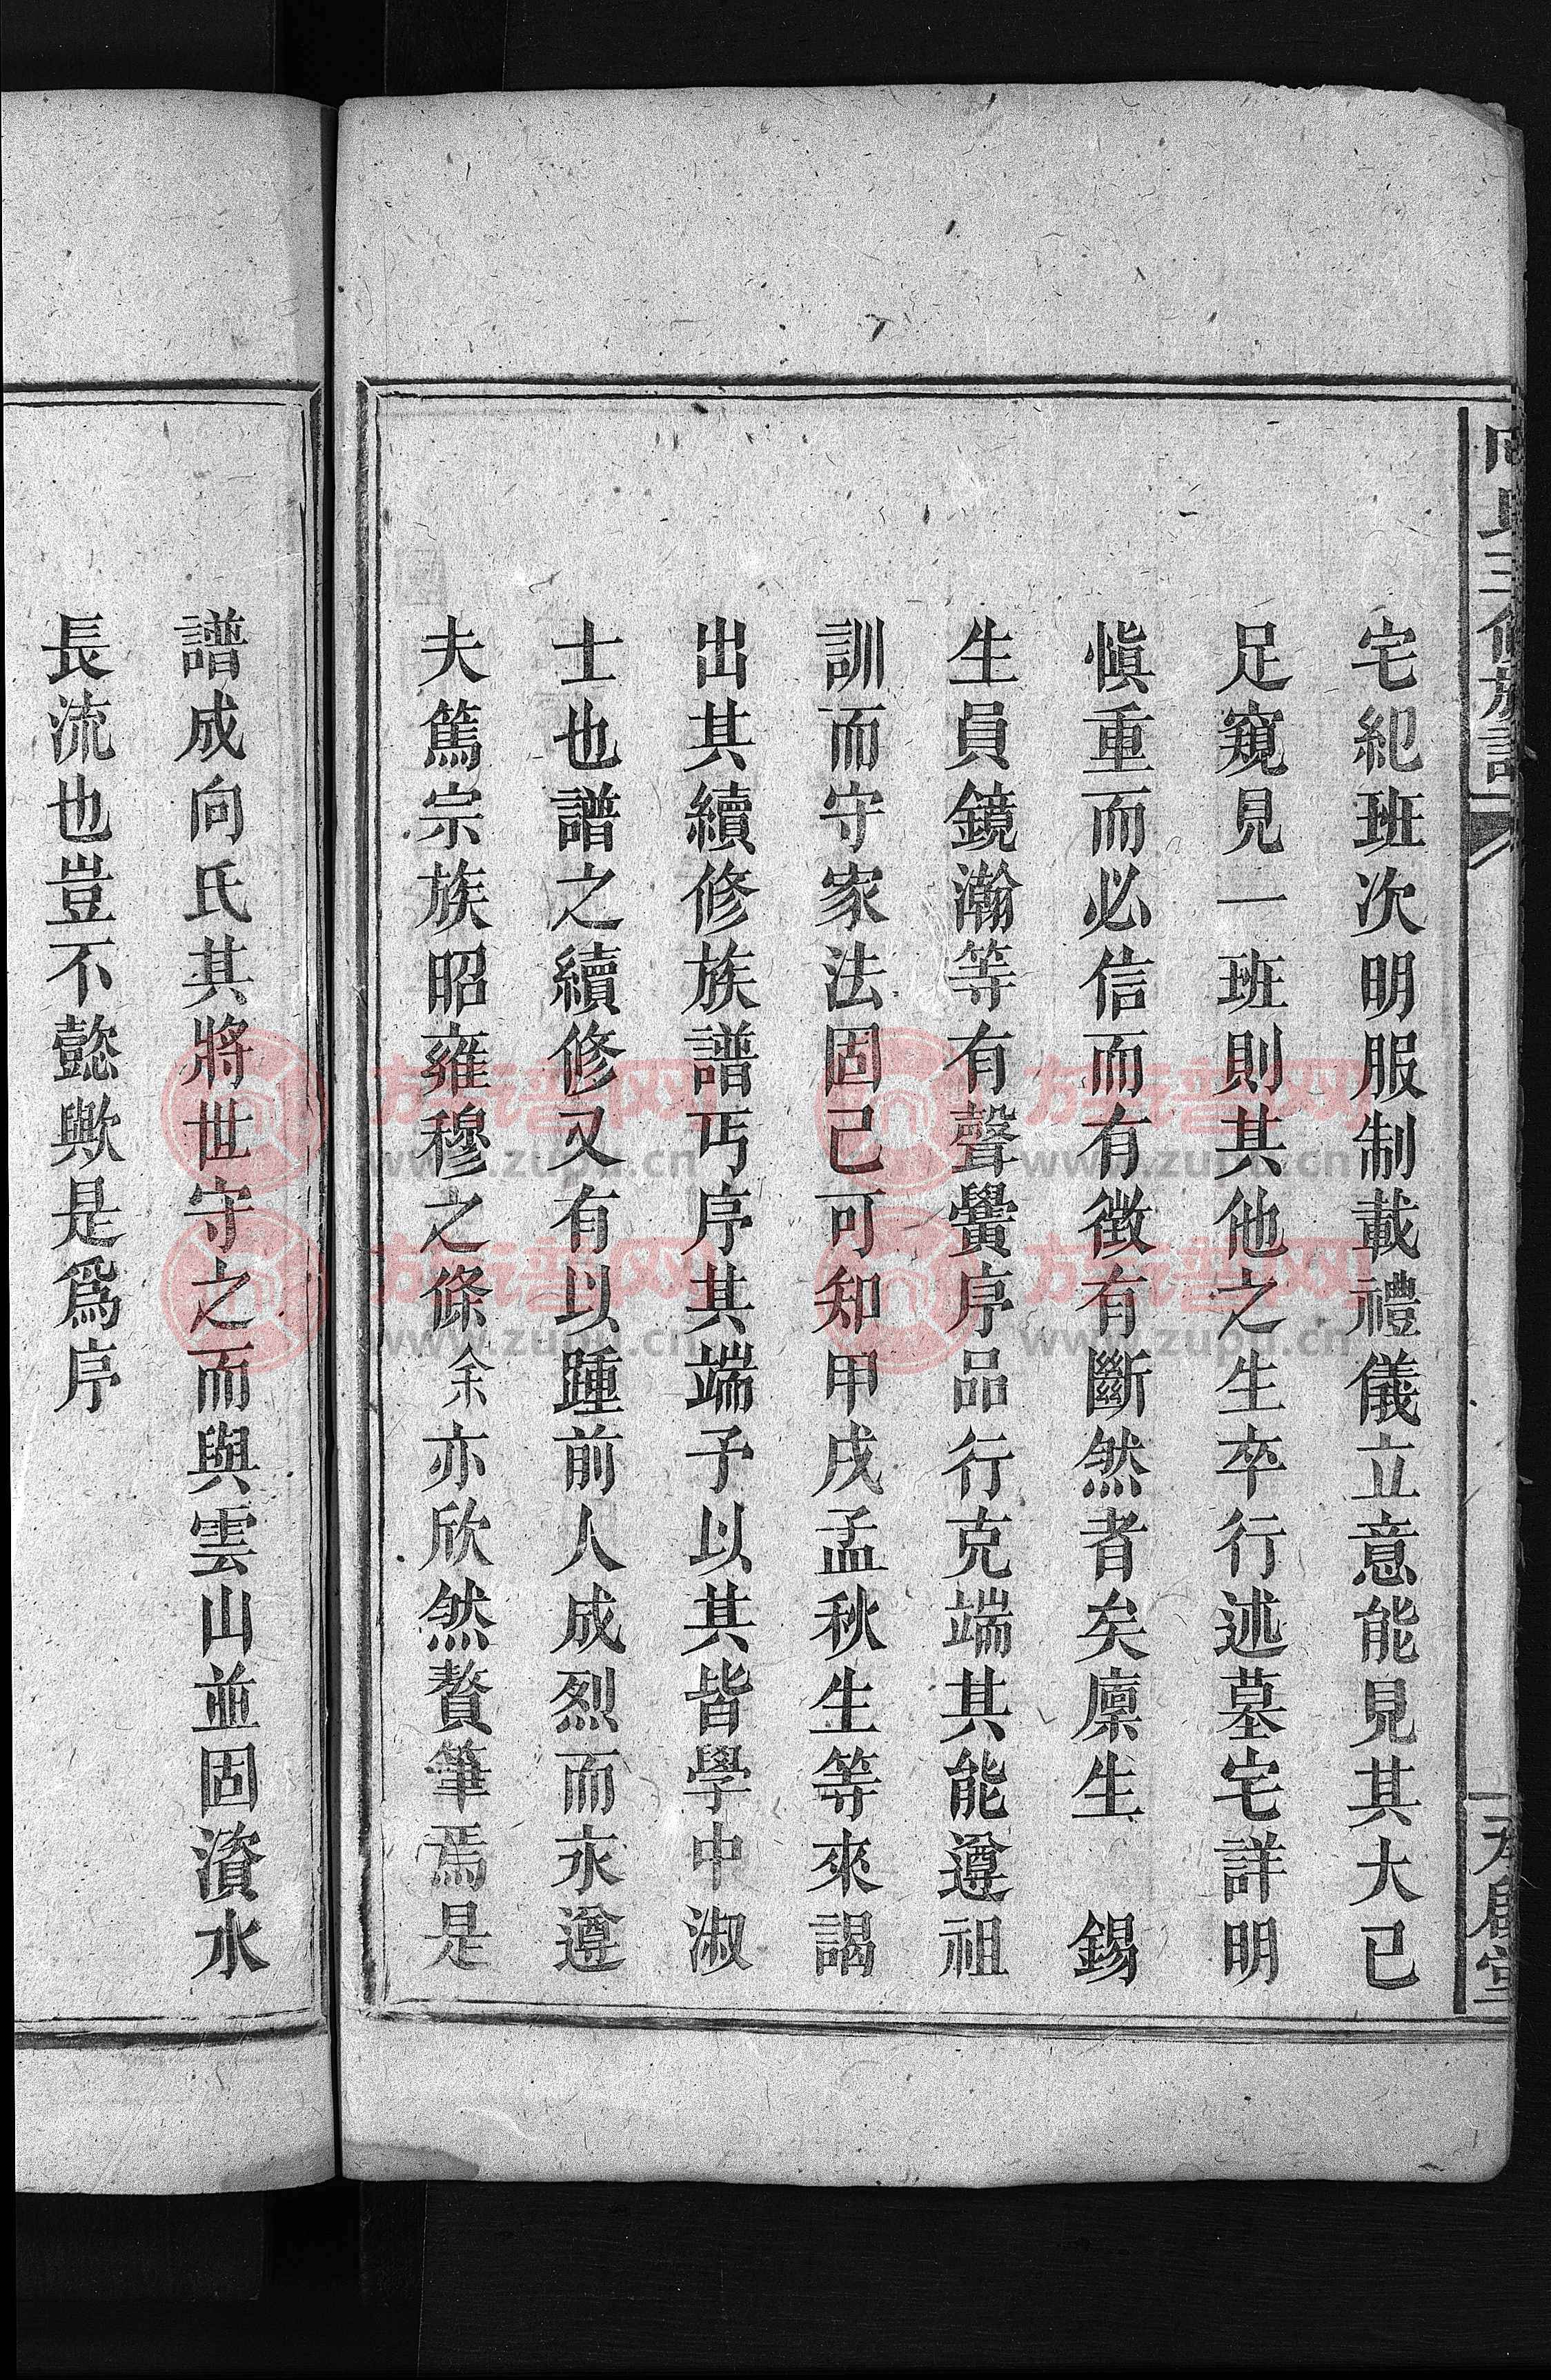 向氏三修族譜
承啟堂
宅紀班次明服制載禮儀立意能見其大已
足窺見一班則其他之生卒行述墓宅詳明
愼重而必信而有徴有斷然者矣廩生　錫
生員鏡瀚等有聲黌序品行克端其能遵祖
訓而守家法固已可知甲戌孟秋生等來謁
出其續修族譜丐序其端予以其皆學中淑
士也譜之續修又有以踵前人成烈而永遵
夫篤宗族昭雍穆之條余亦欣然贅筆焉是
譜成向氏其將世守之而與雲山並固濱水
長流也豈不懿歟是爲序
族譜网
www.zupu.cn
族譜网
www.zupu.cn
族譜网
www.zupu.cn
族譜网
www.zupu.cn